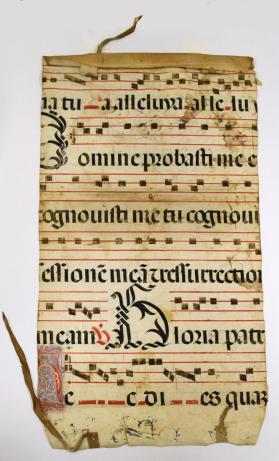 ia tu a alleluya alle lu y
Domine probasti me e
cognouisti me tu cognoui
sessionē meā ⁊ resurrection
meam ℣ Gloria patr
He c di es quaz